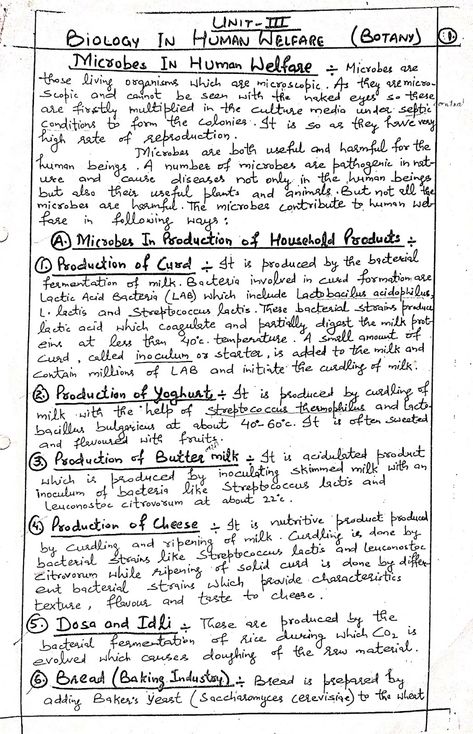 UNIT-III
BIOLOGY IN HUMAN WELFARE (BOTANY) ①
Microbes In Human Welfare ÷ Microbes are
those living organisms which are microscopic. As they are micro-
scopic and cannot be seen with the naked eyes so these
are firstly multiplied in the culture media under septic
conditions to form the colonies. It is so as they have very
high rate of reproduction.
Microbes are both useful and harmful for the
human beings. A number of microbes are pathogenic in nat-
ure and cause diseases not only in the human beings
but also their useful plants and animals. But not all the
microbes are harmful. The microbes contribute to human wel-
fare in following ways:
(A). Microbes In Production of Household Products ÷
① Production of Curd ÷ It is produced by the bacterial
fermentation of milk. Bacteria involved in curd formation are
Lactic Acid Bacteria (LAB) which include Lactobacilus acidophilus,
L. lactis and Streptococcus lactis. These bacterial strains produce
lactic acid which coagulate and partially digest the milk prot-
eins at less than 40°c. temperature. A small amount of
curd, called inoculum or starter, is added to the milk and
contain millions of LAB and initiate the curdling of milk.
② Production of Yoghurt ÷ It is produced by curdling of
milk with the help of Streptococcus thermophilus and lacto-
bacillus bulgaricus at about 40°-60°c. It is often sweeted
and flavoured with fruits.
③ Production of Butter milk ÷ It is acidulated product
which is produced by inoculating skimmed milk with an
inoculum of bacteria like Streptococcus lactis and
Leuconostoc citrovorum at about 22°c.
④ Production of Cheese ÷ It is nutritive product produced
by curdling and ripening of milk. Curdling is done by
bacterial strains like Streptococcus lactis and leuconostoc
citrovorum while ripening of solid curd is done by differ-
ent bacterial strains which provide characteristics
texture, flavour and taste to cheese.
⑤. Dosa and Idli ÷ These are produced by the
bacterial fermentation of rice during which CO₂ is
evolved which causes doughing of the raw material.
⑥ Bread (Baking Industry) ÷ Bread is prepared by
adding Baker's Yeast (Saccharomyces cerevisiae) to the wheat